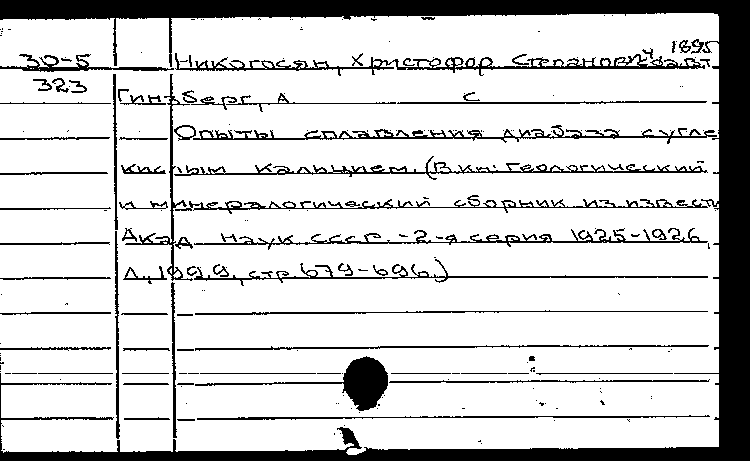 30-5 Никогосян, Христофор Степанович, 1895
323 Гинзберг, А. С
Опыты сплавления диабаза с угле
кислым кальцием. (В кн: Геологический
и минералогический сборник из извести
Акад наук СССР. -2-я серия 1925-1926,
Л., 1999, стр. 679-696.)